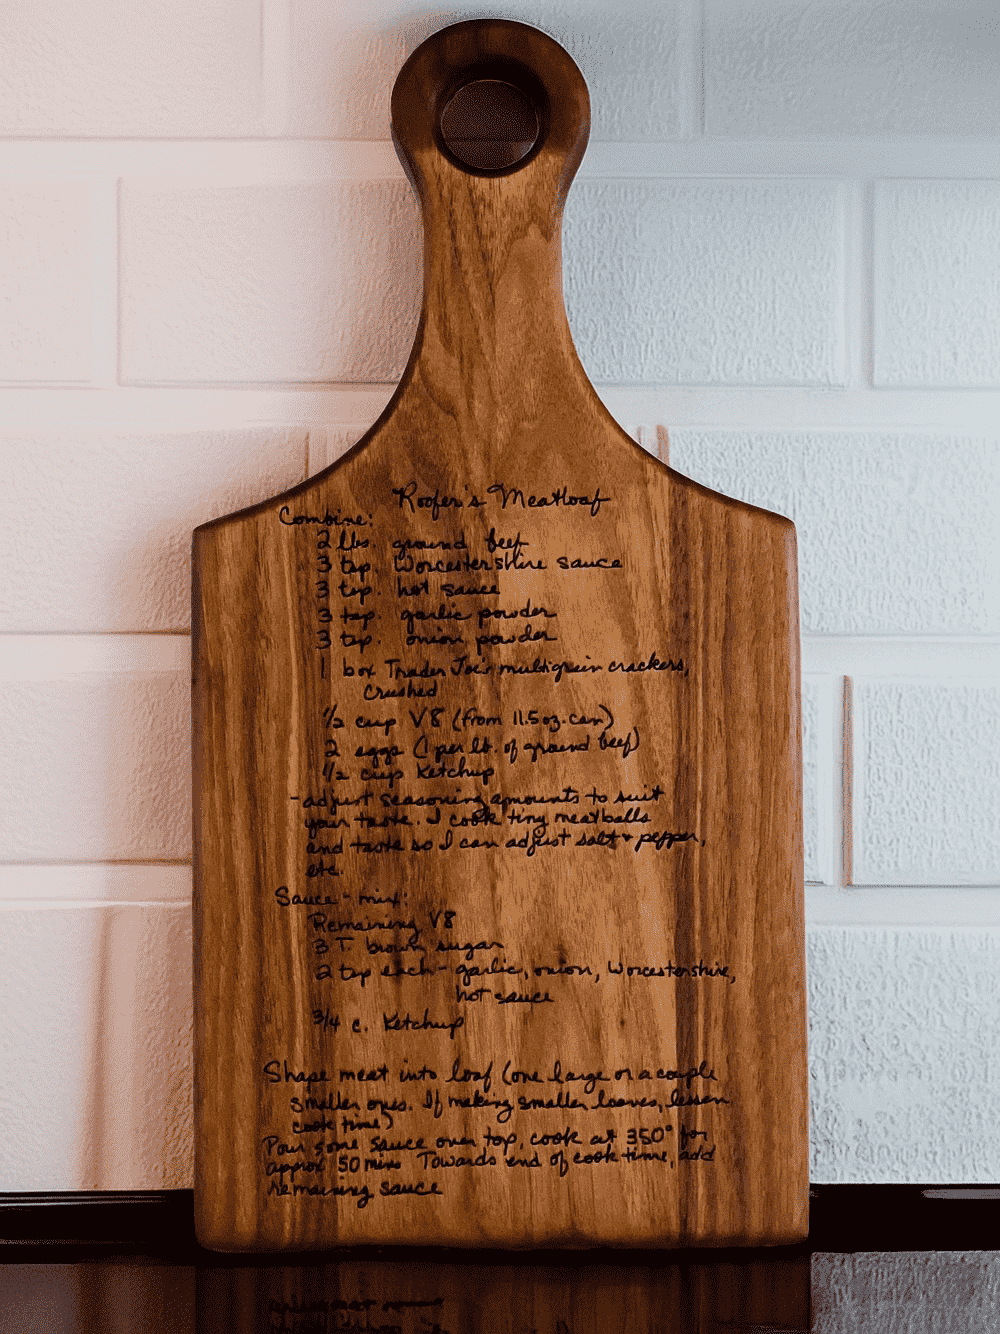 Roofer's Meatloaf
Combine:
2 lbs. ground beef
3 tsp. Worcestershire sauce
3 tsp. hot sauce
3 tsp. garlic powder
3 tsp. onion powder
1 box Trader Joe's multigrain crackers,
crushed
1/2 cup V8 (from 11.5 oz. can)
2 eggs (1 per lb. of ground beef)
1/2 cup Ketchup
- adjust seasoning amounts to suit
your taste. I cook tiny meatballs
and taste so I can adjust salt + pepper,
etc.
Sauce - mix:
Remaining V8
3 T brown sugar
2 tsp each - garlic, onion, Worcestershire,
hot sauce
3/4 c. Ketchup
Shape meat into loaf (one large or a couple
smaller ones. If making smaller loaves, lessen
cook time)
Pour some sauce over top, cook at 350° for
approx 50 mins Towards end of cook time, add
remaining sauce